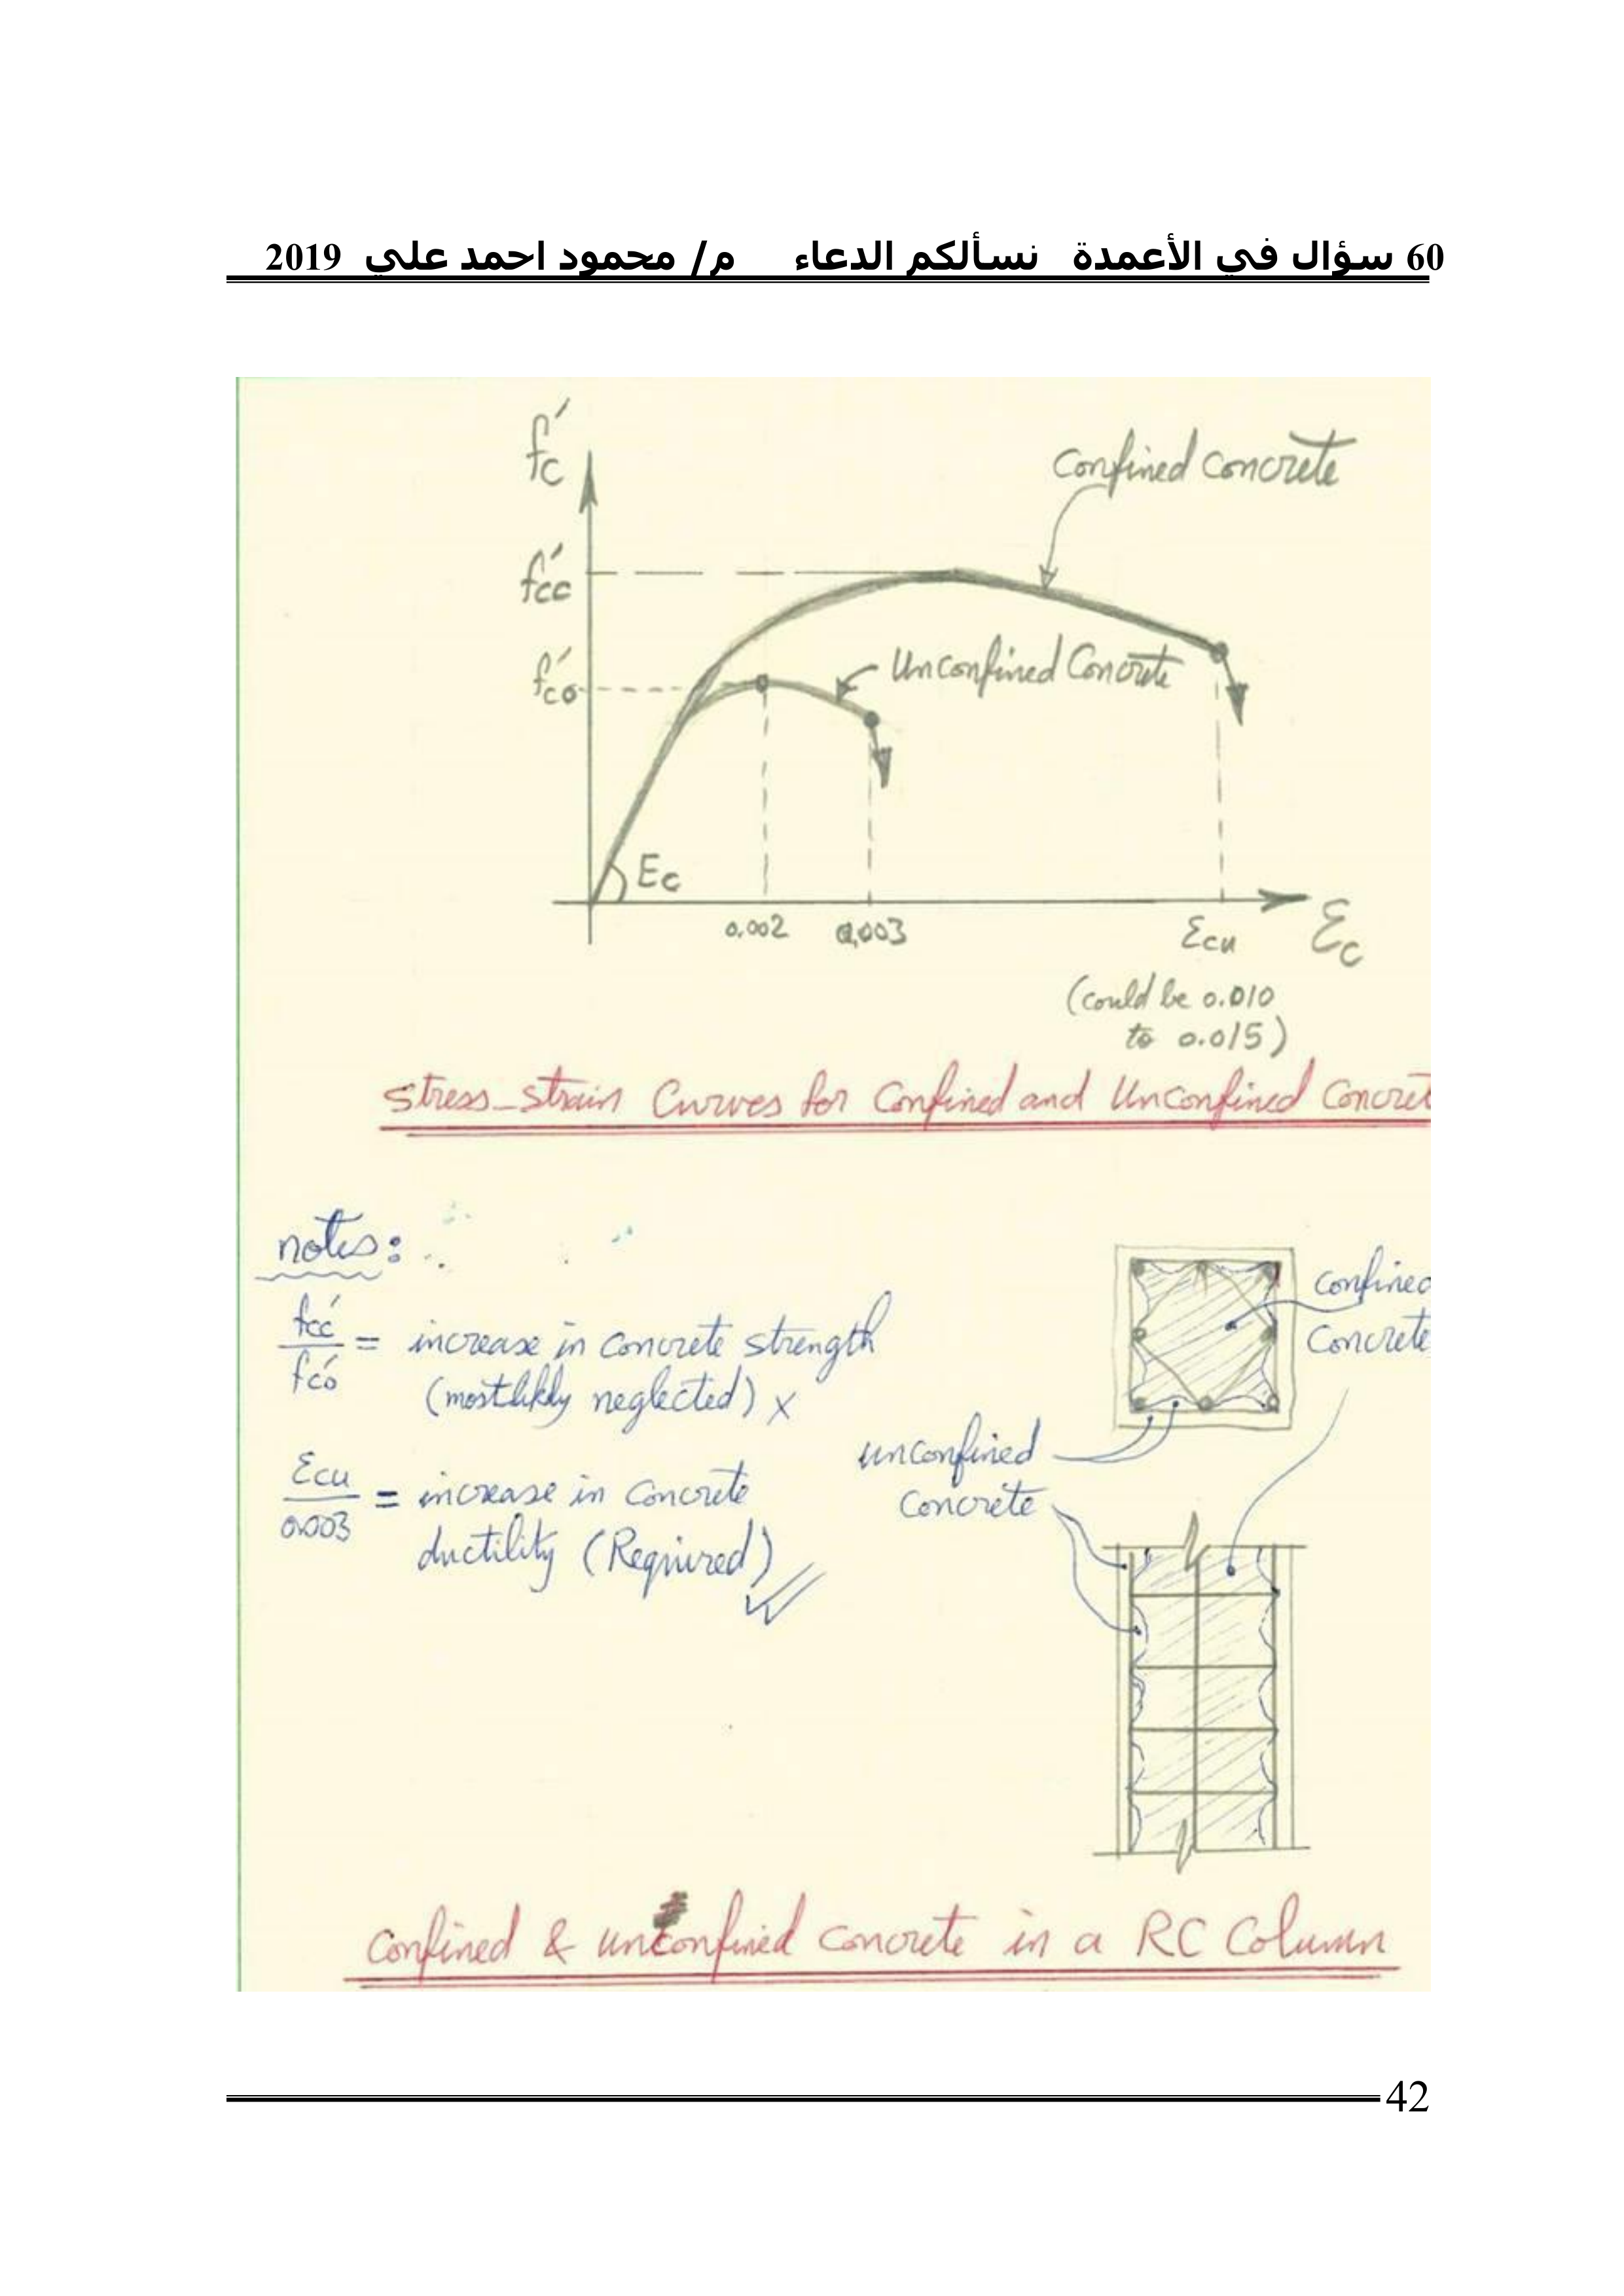 60 سؤال في الأعمدة نسألكم الدعاء م/ محمود احمد علي 2019
f'c
Confined Concrete
f'cc
Unconfined Concrete
f'co
Ec
0.002 0.003 Ɛcu Ɛc
(could be 0.010
to 0.015)
Stress-Strain Curves for Confined and Unconfined Concret
notes:
f'cc
f'co
= increase in concrete strength
(mostlikly neglected) x
Ɛcu
0.003
= increase in concrete
ductility (Required)
confined
Concrete
unconfined
Concrete
Confined & unconfined concrete in a RC Column
42